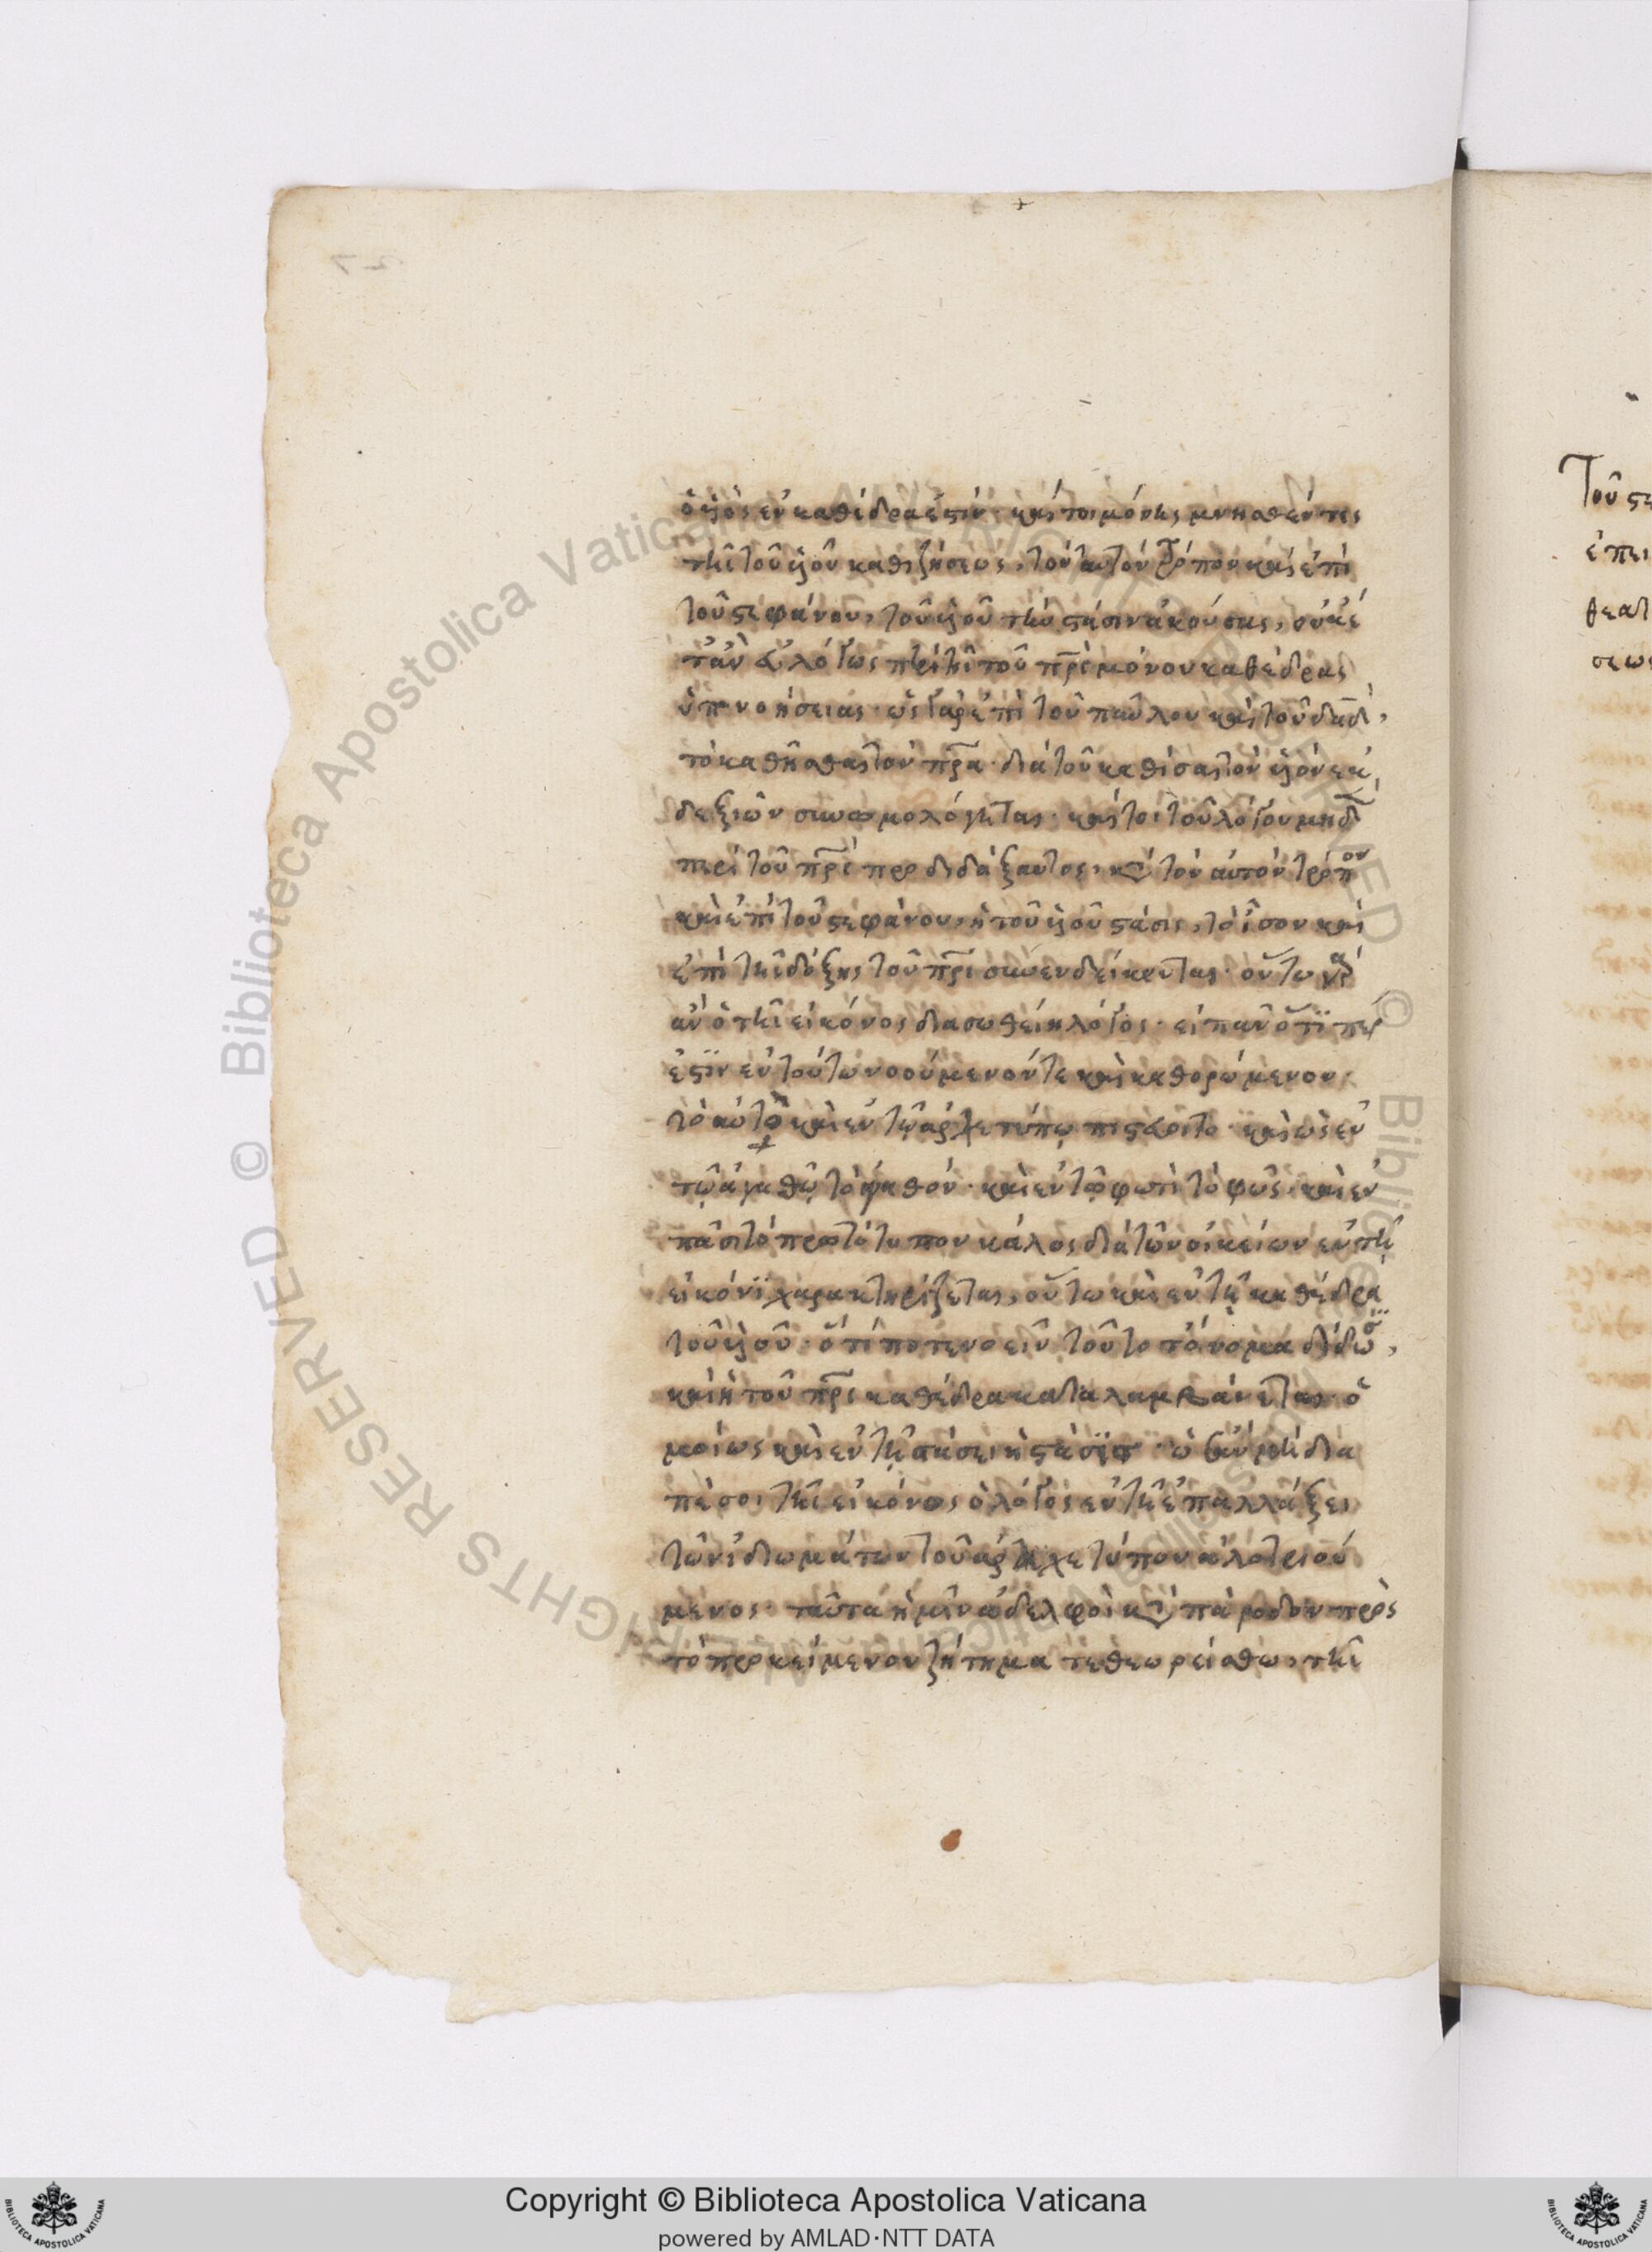 ὁ υἱὸς ἐν καθέδρα ἐστὶν· καίτοι μόνης μνησθέντες
τῆς τοῦ υἱοῦ καθιζήσεως, τὸν αὐτὸν τρόπον καὶ ἐπὶ
τοῦ στεφάνου, τοῦ υἱοῦ τὴν στάσιν ἀκούσας, οὐκέ
τ' ἂν εὐλόγως περὶ τῆς τοῦ πρς μόνου καθέδρας
ὑπονοήσειας· ὡς γὰρ ἐπὶ τοῦ παύλου καὶ τοῦ δαδ,
τὸ καθῆσθαι τὸν πρα· διὰ τοῦ καθίσαι τὸν υἱὸν ἐκ
δεξιῶν συνωμολόγηται· καίτοι τοῦ λόγου μηδὲν
περὶ τοῦ πρς προδιδάξαντος, κατὰ τὸν αὐτὸν τρόπον
καὶ ἐπὶ τοῦ στεφάνου, ἡ τοῦ υἱοῦ στάσις, τὸ ἴσον καὶ
ἐπὶ τῆς δόξης τοῦ πρς συνενδείκνυται· οὕτω γὰρ
ἂν ὁ τῆς εἰκόνος διασωθείη λόγος· εἰ πᾶν ὅτι περ
ἐστὶν ἐν τούτω νοούμενόν τε καὶ καθορώμενον·
τὸ αὐτὸ καὶ ἐν τῷ ἀρχετύπῳ πιστεύοιτο· καὶ ὡς ἐν
τῷ ἀγαθῷ τὸ ἀγαθόν· καὶ ἐν τῷ φωτὶ τὸ φῶς· καὶ ἐν
πᾶσι τὸ πρωτότυπον κάλος διὰ τῶν οἰκείων ἐν τῇ
εἰκόνϊ χαρακτηρίζεται, οὕτω καὶ ἐν τῇ καθέδρα
τοῦ υἱοῦ· ὅτί ποτε νοεῖν τοῦτο τὄνομα δίδωσι,
καὶ ἡ τοῦ πρς καθέδρα καταλαμβάνεται· ὁ
μοίως καὶ ἐν τῇ στάσει ἡ στάσϊς· ὡς ἂν μὴ δια
πέσοι τῆς εἰκόνος ὁ λόγος ἐν τῇ ἐπαλλάξει
τῶν ἰδιωμάτων τοῦ ἀρχετύπου ἀλοτριού
μενος· ταῦτα ἡμῖν ἀδελφοὶ κατὰ πάροδον πρὸς
τὸ προκείμενον ζήτημα τεθεωρείσθω, τῆς
Τοῦ στ
ἐπει
θεατ
σεως
Copyright © Biblioteca Apostolica Vaticana
powered by AMLAD·NTT DATA